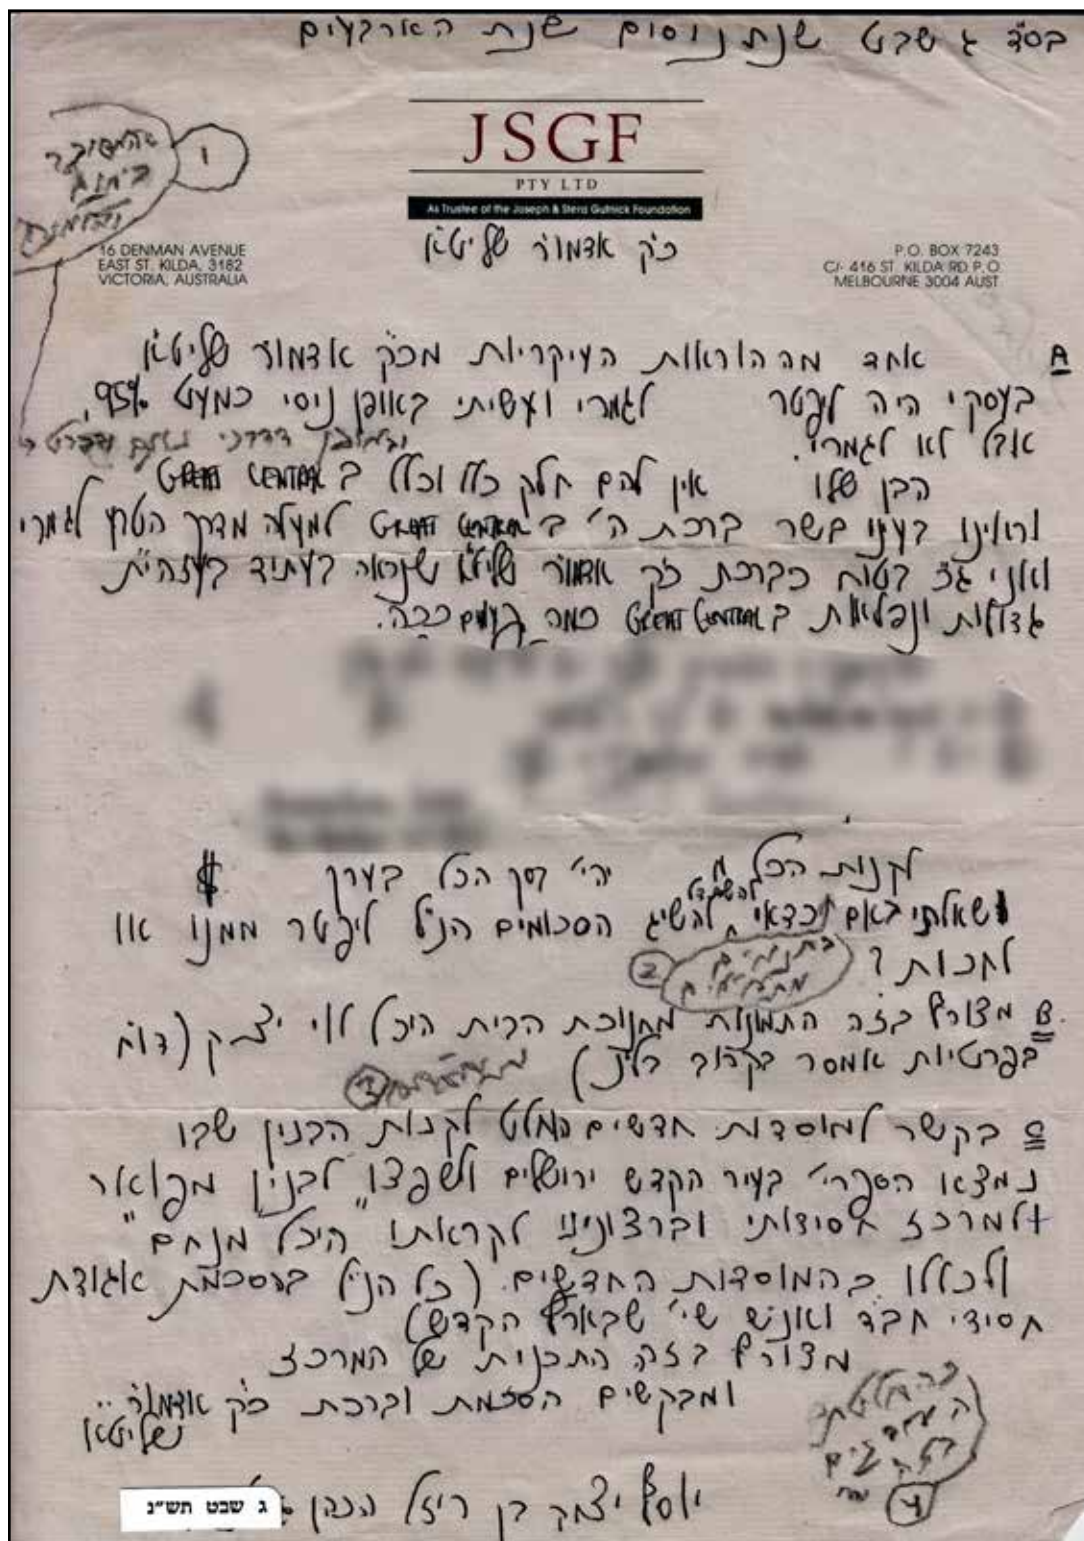 בס״ד ג שבט שנת ניסים שנת הארבעים
JSGF
PTY LTD
As Trustee of the Joseph & Stera Gutnick Foundation
16 DENMAN AVENUE
EAST ST. KILDA, 3182
VICTORIA, AUSTRALIA
P.O. BOX 7243
C/- 416 ST. KILDA RD P.O.
MELBOURNE 3004 AUST
1
כ״ק אדמו״ר שליט״א
A אחד מההוראות העיקריות מכ״ק אדמו״ר שליט״א
בעסקי היה ליפטר לגמרי ועשיתי באופן ניסי כמעט 95%,
אבל לא לגמרי.
הבן שלו אין להם חלק כלל וכלל ב GREAT CENTRAL
וראינו בעיני בשר ברכת ה' ב GREAT CENTRAL למעלה מדרך הטבע לגמרי
ואני ג״כ בטוח בברכת כ״ק אדמו״ר שליט״א שנראה בעתיד בעזהי״ת
גדולות ונפלאות ב GREAT CENTRAL כמה פעמים ככה.
לקנות הכל יהי' סך הכל בערך $
ושאלתי באם כדאי להשתדל להשיג הסכומים הנ״ל ליפטר ממנו או
לחכות?
2
בתנאים
מתאימים
B. מצורף בזה התמונות מחנוכת הבית היכל לוי יצחק (דו״ח
בפרטיות אמסר בקרוב בלי״נ)
3
C בקשר למוסדות חדשים המלט לקנות הבנין שבו
נמצאו הספרי' בעיר הקדש ירושלים ולשפצו לבנין מפואר
ולמרכז חסידותי וברצונינו לקראתו "היכל מנחם"
ולכללו בהמוסדות החדשים. (כל הנ״ל בהסכמת אגודת
חסידי חב״ד ואנ״ש שי' שבארץ הקדש)
מצורף בזה התכנית של המרכז
ומבקשים הסכמת וברכת כ״ק אדמו״ר
שליט״א
4
יוסף יצחק בן רייזל הכהן
ג שבט תש״נ